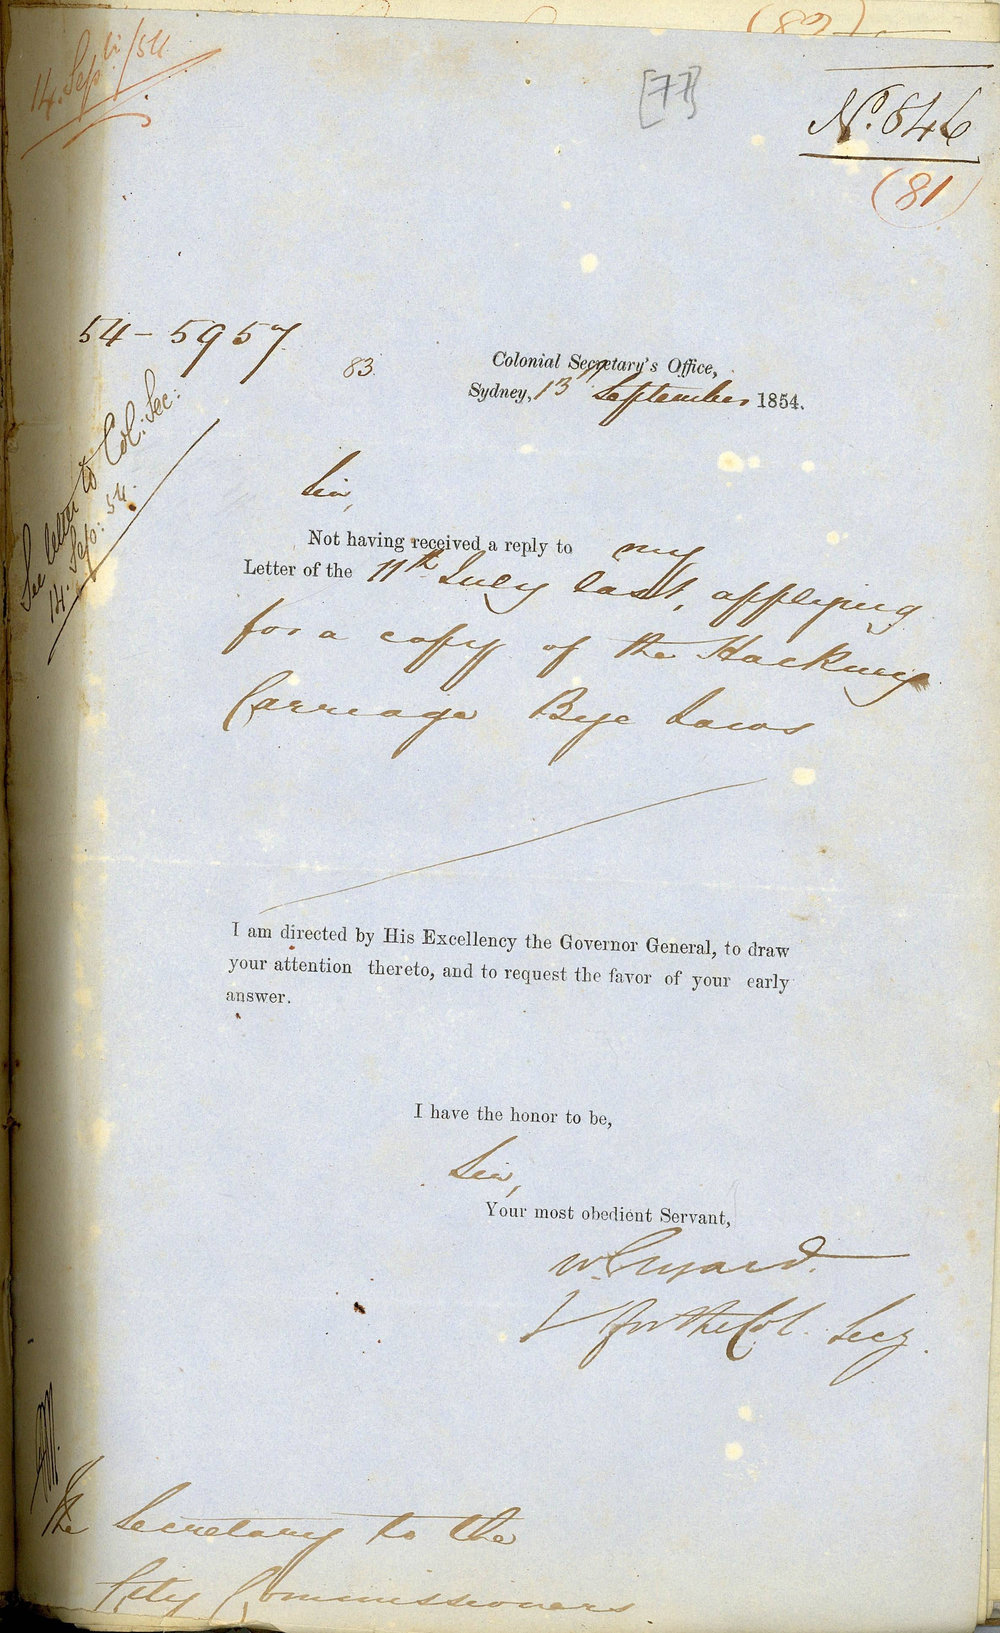 14. Sept/54
[77]
No. 846
(81)
54-5957
83
Colonial Secretary's Office,
Sydney, 13 September 1854.
See letter to Col: Sec:
14. Sep: 54.
Sir,
Not having received a reply to my
Letter of the 11th July last, applying
for a copy of the Hackney
Carriage Bye Laws
I am directed by His Excellency the Governor General, to draw
your attention thereto, and to request the favor of your early
answer.
I have the honor to be,
Sir,
Your most obedient Servant,
W. Elyard.
for the Col. Secy.
The Secretary to the
City Commissioners